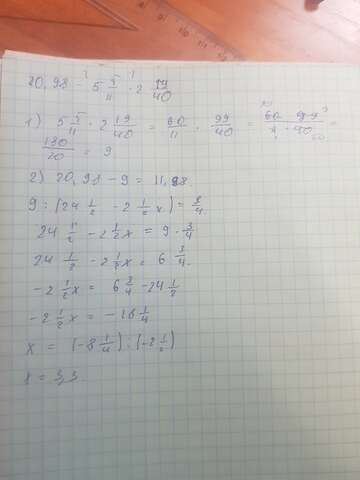 20,98 - 5 5/11 · 2 19/40
1) 5 5/11 · 2 19/40 = 60/11 · 99/40 =
180/20 = 9
2) 20,98 - 9 = 11,98.
9 : (24 1/2 - 2 1/2 x) = 8/4
24 1/2 - 2 1/2 x = 9 · 3/4
24 1/2 - 2 1/2 x = 6 3/4.
-2 1/2 x = 6 3/4 - 24 1/2
-2 1/2 x =
x = (-8 1/4) : (-2 1/2)
x = 3,3.